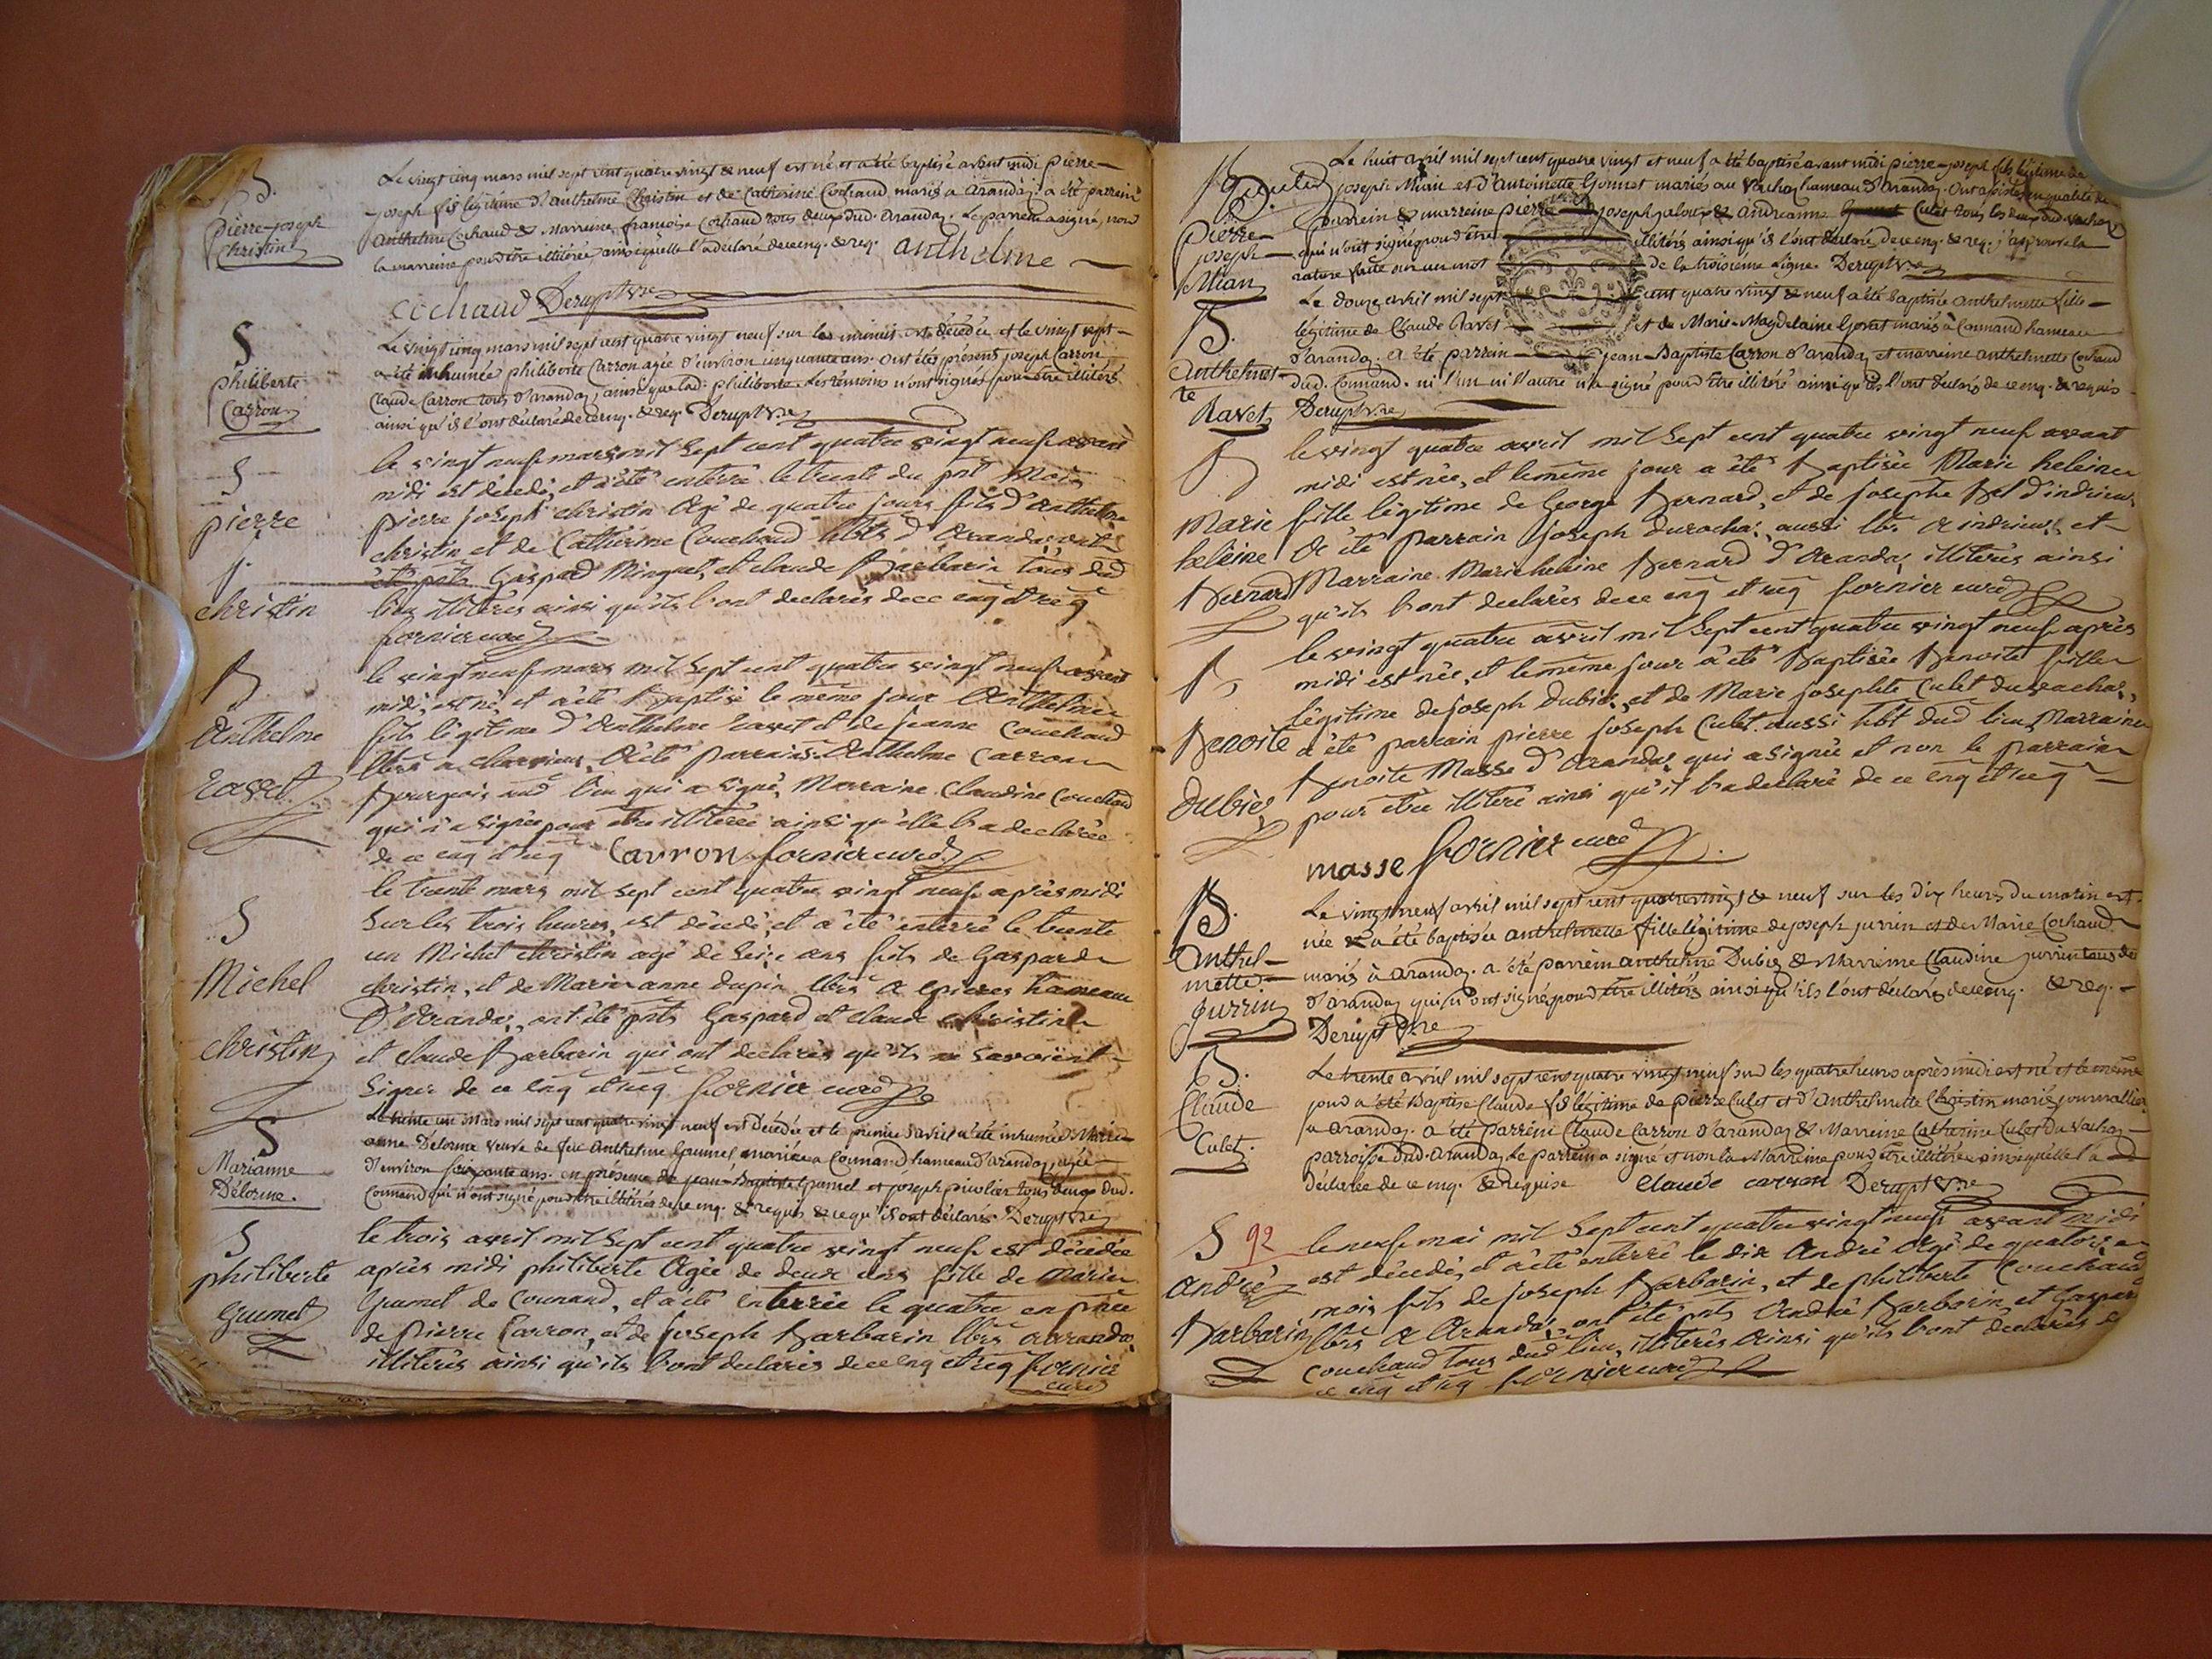 B.
pierre-joseph
Christin
Le vingt cinq mars mil sept cent quatre vingt & neuf est né et a été baptisé avant midi pierre-
joseph fils légitime d'anthelme Christin et de Catherine Cochaud mariés a aranday. a été parrein
anthelme Cochaud & Marreine françoise Cochaud tous deux dud. aranday. Le parrein a signé, non
la marreine pour être illitérée ainsi quelle l'a déclaré de ce enq. & req. anthelme
cochaud Derupt Vre
S
philiberte
Carron
Le vingt cinq mars mil sept cent quatre vingt neuf sur les minuis est décédée et le vingt sept
a été inhumée philiberte Carron agée d'environ cinquante ans. Ont étés présens joseph Carron
Claude Carron tous d'aranday, ainsi que lad. philiberte. Les témoins n'ont signés pour être illitérés
ainsi qu'ils l'ont déclaré de ce enq. & req. Derupt Vre
S
pierre
j.
christin
le vingt neuf mars mil sept cent quatre vingt neuf avant
midi est décédé, et a été enterré le trente du pnt mois
pierre joseph christin agé de quatre jours fils d'anthelme
christin et de Catherine Couchaud hbts d'arandas, ont
été pnts Gaspard Minguet, et claude Barbarin tous dud
lieu illiterés ainsi qu'ils l'ont declarés de ce enq et req
fornier curé
B
Anthelme
ravet
le vingt neuf mars mil sept cent quatre vingt neuf avant
midi, est né, et a été Baptisé le même jour Anthelme
fils légitime d'Anthelme ravet et de jeanne Couchaud
a été Parrain Anthelme Carron
Bourgois aud lieu qui a signé, Marraine Claudine Couchaud
qui n'a signée pour etre illiterée ainsi qu'elle l'a declarée
de ce enq et req Carron fornier curé
S
Michel
christin
le trente mars mil sept cent quatre vingt neuf après midi
sur les trois heures, est décédé, et a été enterré le trente
un Michel christin agé de seize ans fils de Gaspard
christin, et de Marie anne dupin hbts a épierres hameau
D'Arandas, ont été pnts Gaspard et claude christin
et claude Barbarin qui ont declarés qu'ils ne savoient
signer de ce enq et req fornier curé
S
Marianne
Délorme.
Le trente un mars mil sept cent quatre vingt neuf est décédée et le premier d'avril a été inhumée Marie
anne Delorme veuve de feu anthelme Gaumel mariée a Counand hameau d'aranday, agée
d'environ soixante ans. en présence de jean-Baptiste et joseph tous deux dud.
Counand qui n'ont signé pour être illitérés de ce enq. & requis & ce qu'ils ont déclarés. Derupt Vre
S
philiberte
Grumet
le trois avril mil sept cent quatre vingt neuf est décédée
après midi philiberte agée de deux ans fille de Marie
Grumet de Counand, et a été enterrée le quatre en pnce
de Pierre Carron, et de joseph Barbarin hbts a arandas
illiterés ainsi qu'ils l'ont declarés de ce enq et req fornier
curé
B.
Pierre-
joseph
Mian
Le huit avril mil sept cent quatre vingt et neuf a été baptisé avant midi pierre-joseph fils légitime de
joseph Mian et d'Antoinette Gonnet mariés au vachay hameau d'Aranday. Ont assistés en qualité de
parrein & marreine pierre joseph & andreanne Culet tous les deux dud. vachay
qui n'ont signé pour être illitérés ainsi qu'ils l'ont déclaré de ce enq. & req. j'approuve la
rature faite sur un mot de la troisiéme ligne. Derupt Vre
B.
Anthelmet-
te
Ravet
Le douze avril mil sept cent quatre vingt & neuf a été baptisée anthelmette fille
légitime de Claude Ravet et de Marie-Magdelaine Gonet mariés à Counand hameau
d'aranday. a été parrein jean-Baptiste Carron d'aranday et marreine anthelmette Cochaud
dud. Counand. ni l'un ni l'autre n'a signé pour être illitéré ainsi qu'ils l'ont déclarés de ce enq. & requis
Derupt Vre
B
Marie
heleine
Bernard
le vingt quatre avril mil sept cent quatre vingt neuf avant
midi est née, et le même jour a été Baptisée Marie heleine
fille légitime de George Bernard, et de josephe Bel d'indrieu,
a été parrain joseph durochat, aussi hbt a indrieux, et
Marraine Marie heleine Bernard d'Arandas, illiterés ainsi
qu'ils l'ont declarés de ce enq et req fornier curé
B
Benoite
dubiez
le vingt quatre avril mil sept cent quatre vingt neuf après
midi est née, et le même jour a été Baptisée Benoite fille
légitime de joseph Dubiez, et de Marie josephte Culet du vachat,
a été parrain pierre joseph Culet aussi hbt dud lieu, Marraine
Benoite Masse d'Arandas, qui a signée et non le parrain
pour être illiteré ainsi qu'il l'a declaré de ce enq et req
masse fornier curé
B.
Anthel-
mette
jurrin
Le vingt neuf avril mil sept cent quatre vingt & neuf sur les dix heures du matin est
née & a été baptisée anthelmette fille légitime de joseph jurrin et de Marie Cochaud
mariés à aranday. a été parrein anthelme Dubiez & Marreine Claudine jurrin tous deux
d'aranday qui n'ont signé pour être illitérés ainsi qu'ils l'ont déclarés de ce enq. & req.
Derupt Vre
B.
Claude
Culet.
Le trente avril mil sept cent quatre vingt neuf sur les quatre heures après midi est né et le même
jour a été Baptisé Claude fils légitime de pierre Culet et d'anthelmette Christin mariés journallier
a aranday. a été parrein Claude Carron d'aranday & Marreine Catherine Culet du vachay
parroisse dud. aranday. Le parrein a signé et non la Marreine pour être illitérée ainsi quelle l'a
déclarée de ce enq. & requise claude carron Derupt Vre
S 92
André
Barbarin
le neuf mai mil sept cent quatre vingt neuf avant midi
est décédé, et a été enterré le dix André agé de quatorze
mois fils de joseph Barbarin, et de philiberte Couchaud
hbts a Arandas, ont été pnts André Barbarin, et Gaspard
Couchaud tous dud lieu, illiterés ainsi qu'ils l'ont declarés de
ce enq et req fornier curé